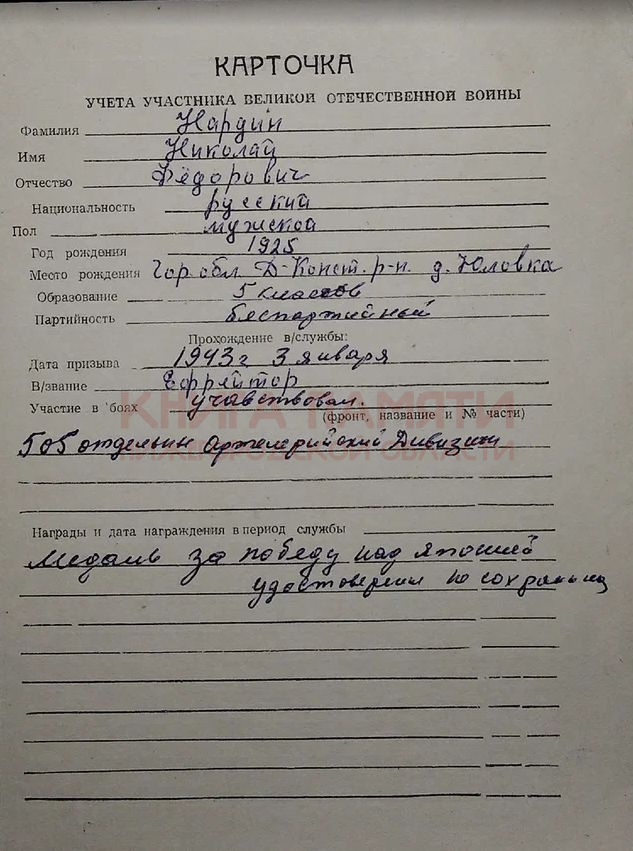 КАРТОЧКА
УЧЕТА УЧАСТНИКА ВЕЛИКОЙ ОТЕЧЕСТВЕННОЙ ВОЙНЫ
Фамилия Нардин
Имя Николай
Отчество Фёдорович
Национальность русский
Пол мужской
Год рождения 1925
Место рождения Гор. обл. Д-Конст. р-н. д. Юловка
Образование 5 классов
Партийность беспартийный
Прохождение в/службы:
Дата призыва 1943 г 3 января
В/звание Ефрейтор
Участие в боях участвовал.
КНИГА ПАМЯТИ
(фронт, название и № части)
505 отдельн Артелерийский Дивизион
НИЖЕГОРОДСКОЙ ОБЛАСТИ
Награды и дата награждения в период службы
Медаль за победу над Японией
удостоверен